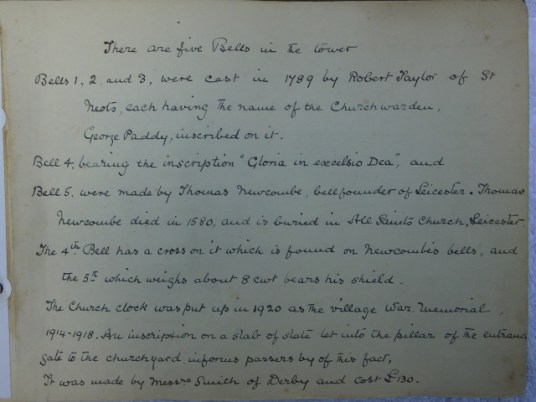 There are five Bells in the tower
Bells 1, 2 and 3, were cast in 1789 by Robert Taylor of St
Neots, each having the name of the Churchwarden,
George Paddy, inscribed on it.
Bell 4, bearing the inscription "Gloria in excelsio Dea", and
Bell 5, were made by Thomas Newcombe, bellfounder of Leicester. Thomas
Newcombe died in 1580, and is buried in All Saints Church, Leicester
The 4th Bell has a cross on it which is found on Newcombe's bells, and
the 5th which weighs about 8 cwt bears his shield.
The Church clock was put up in 1920 as the village War Memorial
1914-1918. An inscription on a slab of slate let into the pillar of the entrance
gate to the churchyard informs passers by of this fact.
It was made by Messrs Smith of Derby and cost £130.